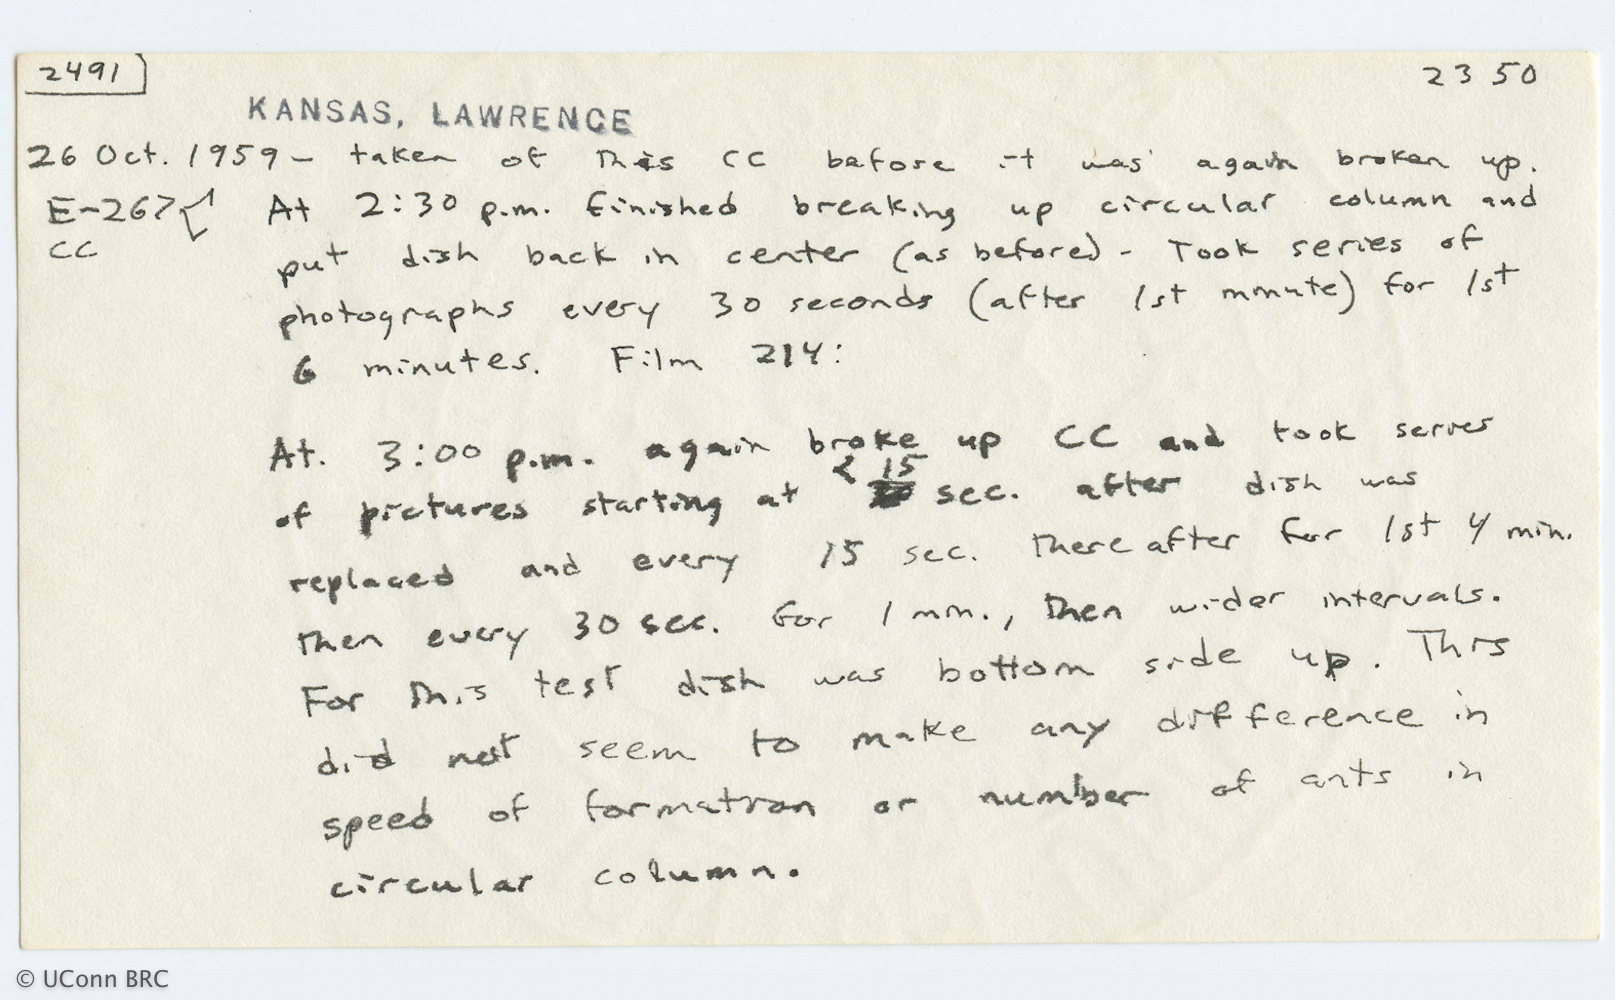 2491
2350
KANSAS, LAWRENCE
26 Oct. 1959 - taken of this CC before it was again broken up.
E-267 At 2:30 p.m. finished breaking up circular column and
CC
put dish back in center (as before) - Took series of
photographs every 30 seconds (after 1st minute) for 1st
6 minutes. Film 214:
At. 3:00 p.m. again broke up CC and took series
of pictures starting at < 15 sec. after dish was
replaced and every 15 sec. thereafter for 1st 4 min.
then every 30 sec. for 1 min., then wider intervals.
For this test dish was bottom side up. This
did not seem to make any difference in
speed of formation or number of ants in
circular column.
© UConn BRC